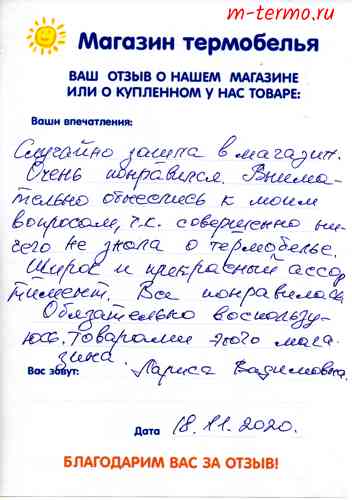 m-termo.ru
Магазин термобелья
ВАШ ОТЗЫВ О НАШЕМ МАГАЗИНЕ
ИЛИ О КУПЛЕННОМ У НАС ТОВАРЕ:
Ваши впечатления:
Случайно зашла в магазин.
Очень понравился. Внима-
тельно отнеслись к моим
вопросам, т.к. совершенно ни-
чего не знала о термобелье.
Широк и прекрасный ассор
тимент. Все понравилось
Обязательно воспользу-
юсь товарами этого мага
зина.
Вас зовут: Лариса Вадимовна.
Дата 18.11.2020.
БЛАГОДАРИМ ВАС ЗА ОТЗЫВ!